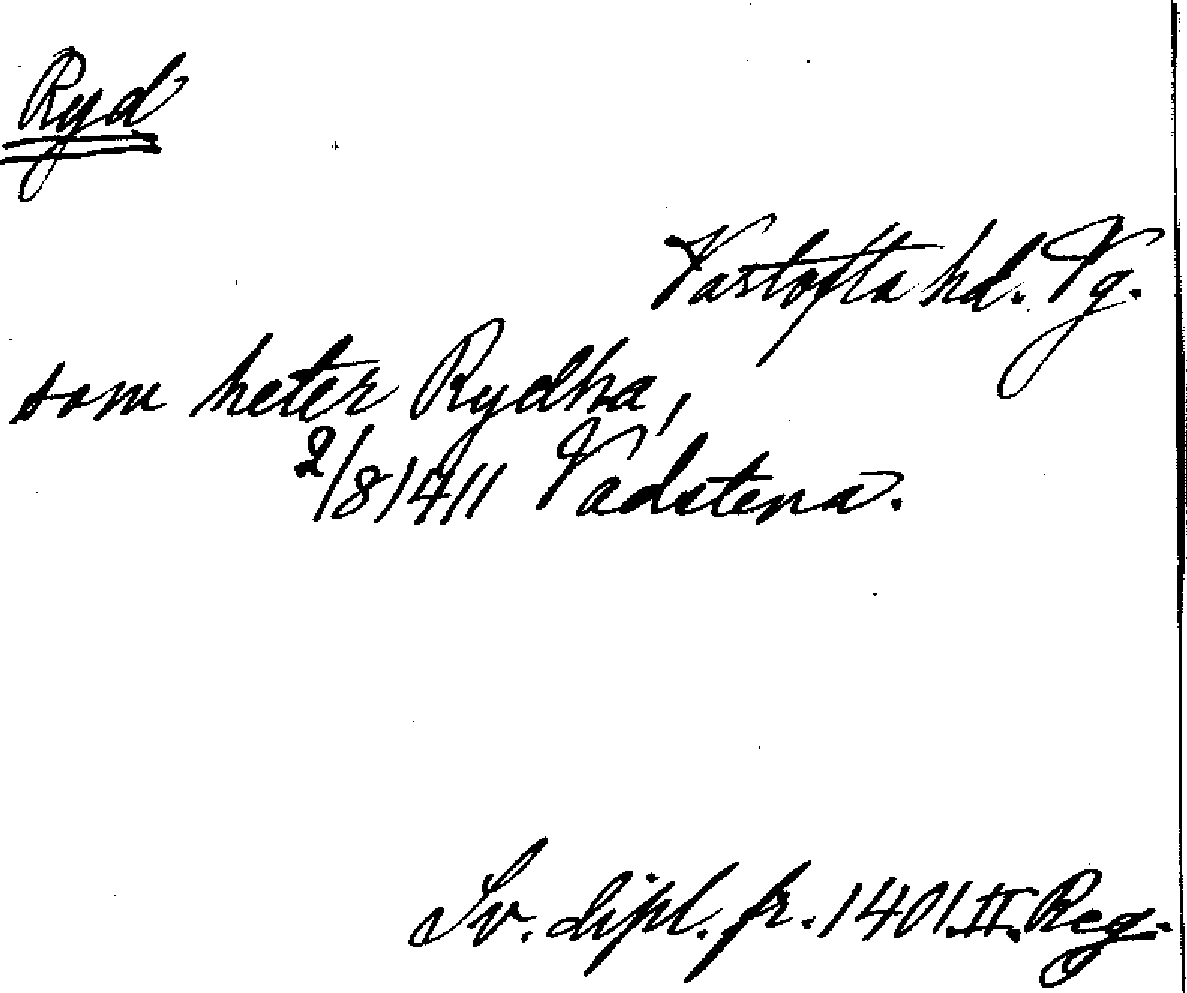 Ryd
Vartofta hd. Vg.
som heter Rydha,
2/8 1411 Vadstena.
Sv. dipl. fr. 1401. II. Reg.